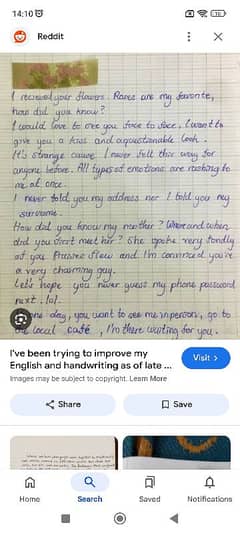 14:10
Reddit
I received your flowers. Roses are my favorite,
how did you know?
I would love to see you face to face. I want to
give you a kiss and a questionable look.
It's strange cause I never felt this way for
anyone before. All types of emotions are rushing to
me at once.
I never told you my address nor I told you my
surname.
How did you know my mother? Where and when
did you first meet her? She spoke very fondly
of you. Phrases flew and I'm convinced you're
a very charming guy.
Let's hope you never guess my phone password
next. lol.
one day, you want to see me in person, go to
local café, I'm there waiting for you.
I've been trying to improve my
English and handwriting as of late ...
Visit >
Images may be subject to copyright. Learn More
Share
Save
Home
Search
Saved
Notifications